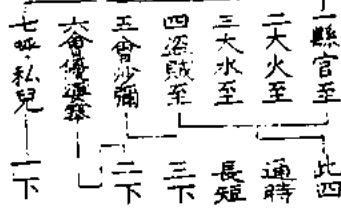 一縣官至
二大火至
三大水至
四盜賊至
五會沙彌
六會優婆塞
七呼私兒
此四
通時
長短
三下
二下
一下